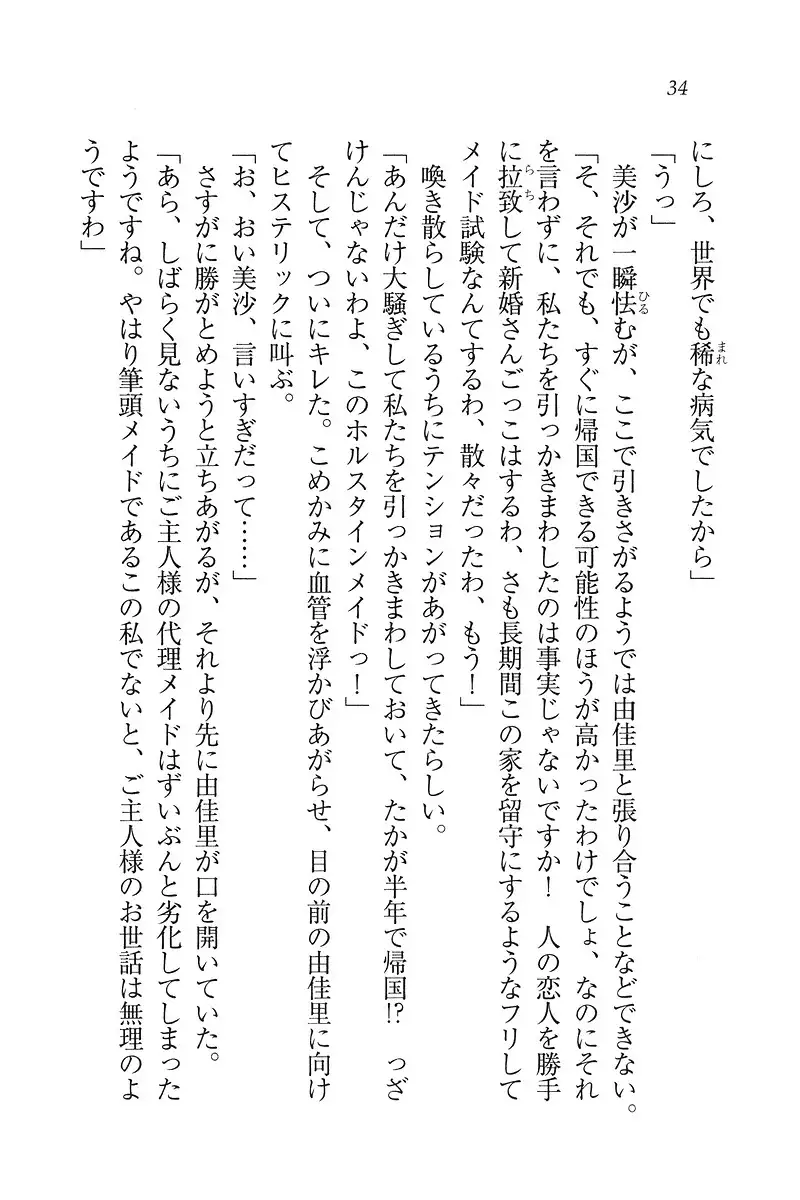 34
にしろ、世界でも稀な病気でしたから」
「うっ」
美沙が一瞬怯むが、ここで引きさがるようでは由佳里と張り合うことなどできない。
「そ、それでも、すぐに帰国できる可能性のほうが高かったわけでしょ、なのにそれ
を言わずに、私たちを引っかきまわしたのは事実じゃないですか！　人の恋人を勝手
に拉致して新婚さんごっこはするわ、さも長期間この家を留守にするようなフリして
メイド試験なんてするわ、散々だったわ、もう！」
喚き散らしているうちにテンションがあがってきたらしい。
「あんだけ大騒ぎして私たちを引っかきまわしておいて、たかが半年で帰国!?　っざ
けんじゃないわよ、このホルスタインメイドっ！」
そして、ついにキレた。こめかみに血管を浮かびあがらせ、目の前の由佳里に向け
てヒステリックに叫ぶ。
「お、おい美沙、言いすぎだって……」
さすがに勝がとめようと立ちあがるが、それより先に由佳里が口を開いていた。
「あら、しばらく見ないうちにご主人様の代理メイドはずいぶんと劣化してしまった
ようですね。やはり筆頭メイドであるこの私でないと、ご主人様のお世話は無理のよ
うですわ」